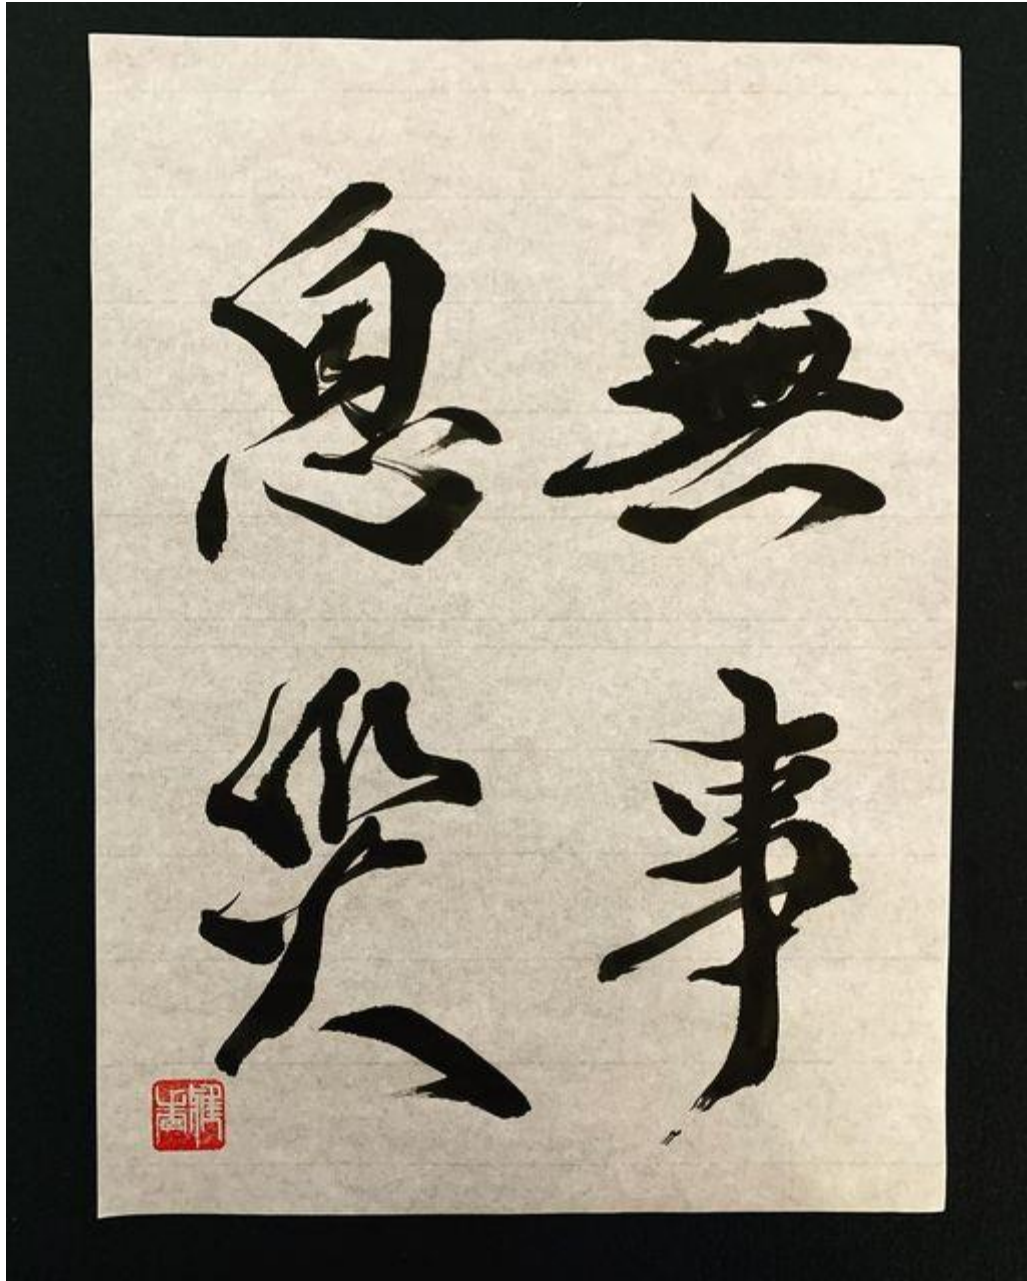 無事
息災